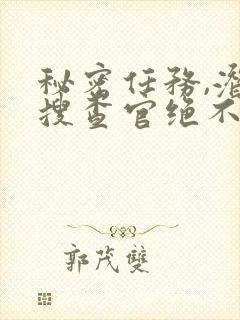 秘密任務,潛
搜查官绝不
郭茂雙